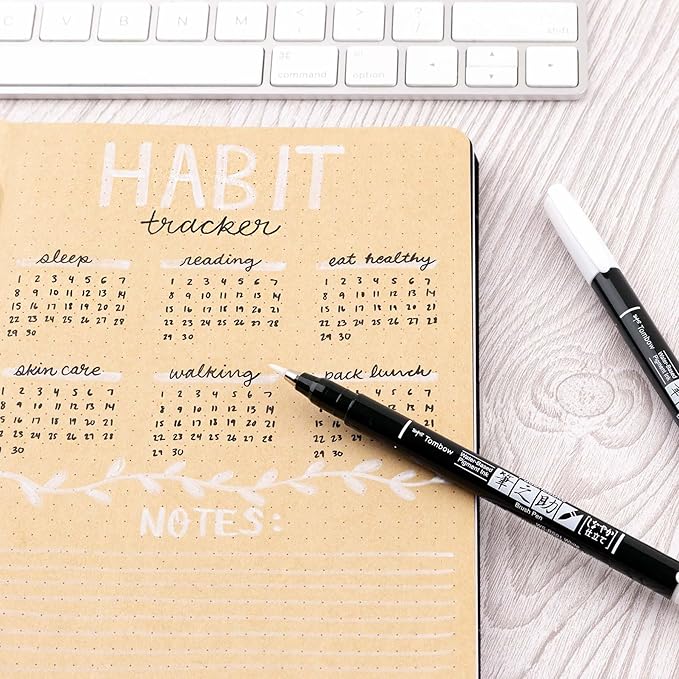 Z X C V B N M < , > . ? / shift
⌘ command option ◀ ▲ ▼ ▶
HABIT
tracker
sleep reading eat healthy
1 2 3 4 5 6 7 1 2 3 4 5 6 7 1 2 3 4 5 6 7
8 9 10 11 12 13 14 8 9 10 11 12 13 14 8 9 10 11 12 13 14
15 16 17 18 19 20 21 15 16 17 18 19 20 21 15 16 17 18 19 20 21
22 23 24 25 26 27 28 22 23 24 25 26 27 28 22 23 24 25 26 27 28
29 30 29 30 29 30
skin care walking pack lunch
1 2 3 4 5 6 7 1 2 3 4 5 6 7 1 5 6 7
8 9 10 11 12 13 14 8 9 10 11 12 13 14 8 9 13 14
15 16 17 18 19 20 21 15 16 17 18 19 20 21 15 16 17
22 23 24 25 26 27 28 22 23 24 25 26 27 28 22 23 24 25
29 30 29 30 29 30
NOTES:
Tombow
Water-Based
Pigment Ink
筆之助
Brush Pen
しなやか
仕立て
Tombow
Water-Based
Pigment Ink
筆